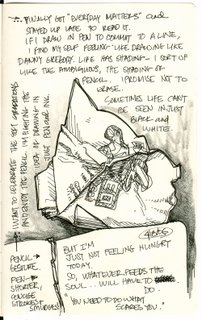 FINALLY GOT "EVERYDAY MATTERS" AND
STAYED UP LATE TO READ IT.
IF I DRAW IN PEN TO COMMIT TO A LINE,
I FIND MYSELF FEELING LIKE DRAWING LIKE
DANNY GREGORY. LIFE HAS SHADING - I SORT OF
LIKE THE AMBIGUOUS, THE SHADING OF
PENCIL. I PROMISE NOT TO
ERASE.
SOMETIMES LIFE CAN'T
BE SEEN IN JUST
BLACK AND
WHITE.
I WANT TO CELEBRATE THE
AND ENJOY THE PENCIL. I'M FIGHTING THE
IDEA OF DRAWING IN
JUST PEN AND INK
PENCIL →
GESTURE.
PEN →
SHORTER,
STROKES
BUT I'M
JUST NOT FEELING HUNGRY
TODAY.
SO, WHATEVER FEEDS THE
SOUL... WILL HAVE TO
DO
"YOU NEED TO DO WHAT
SCARES YOU."